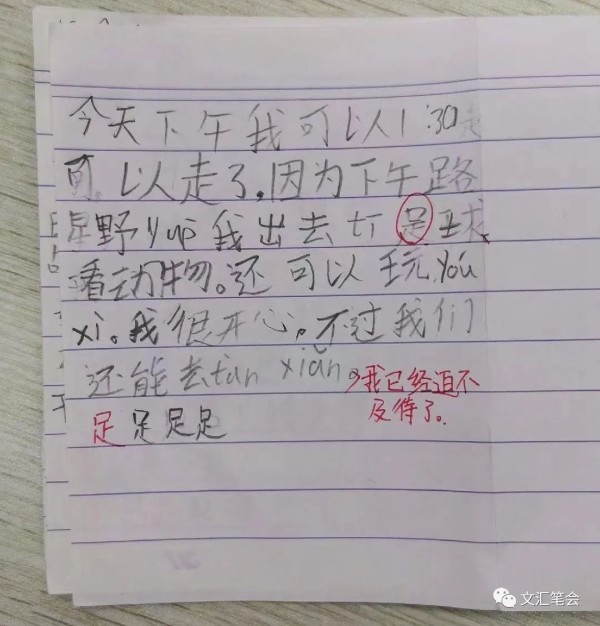 今天下午我可以1:30走
可以走了,因为下午路
星野yup我出去打足球
看动物。还可以玩you
xi。我很开心。不过我们
还能去tan xiǎn。,我已经迫不
及待了。
足足足足
文汇笔会